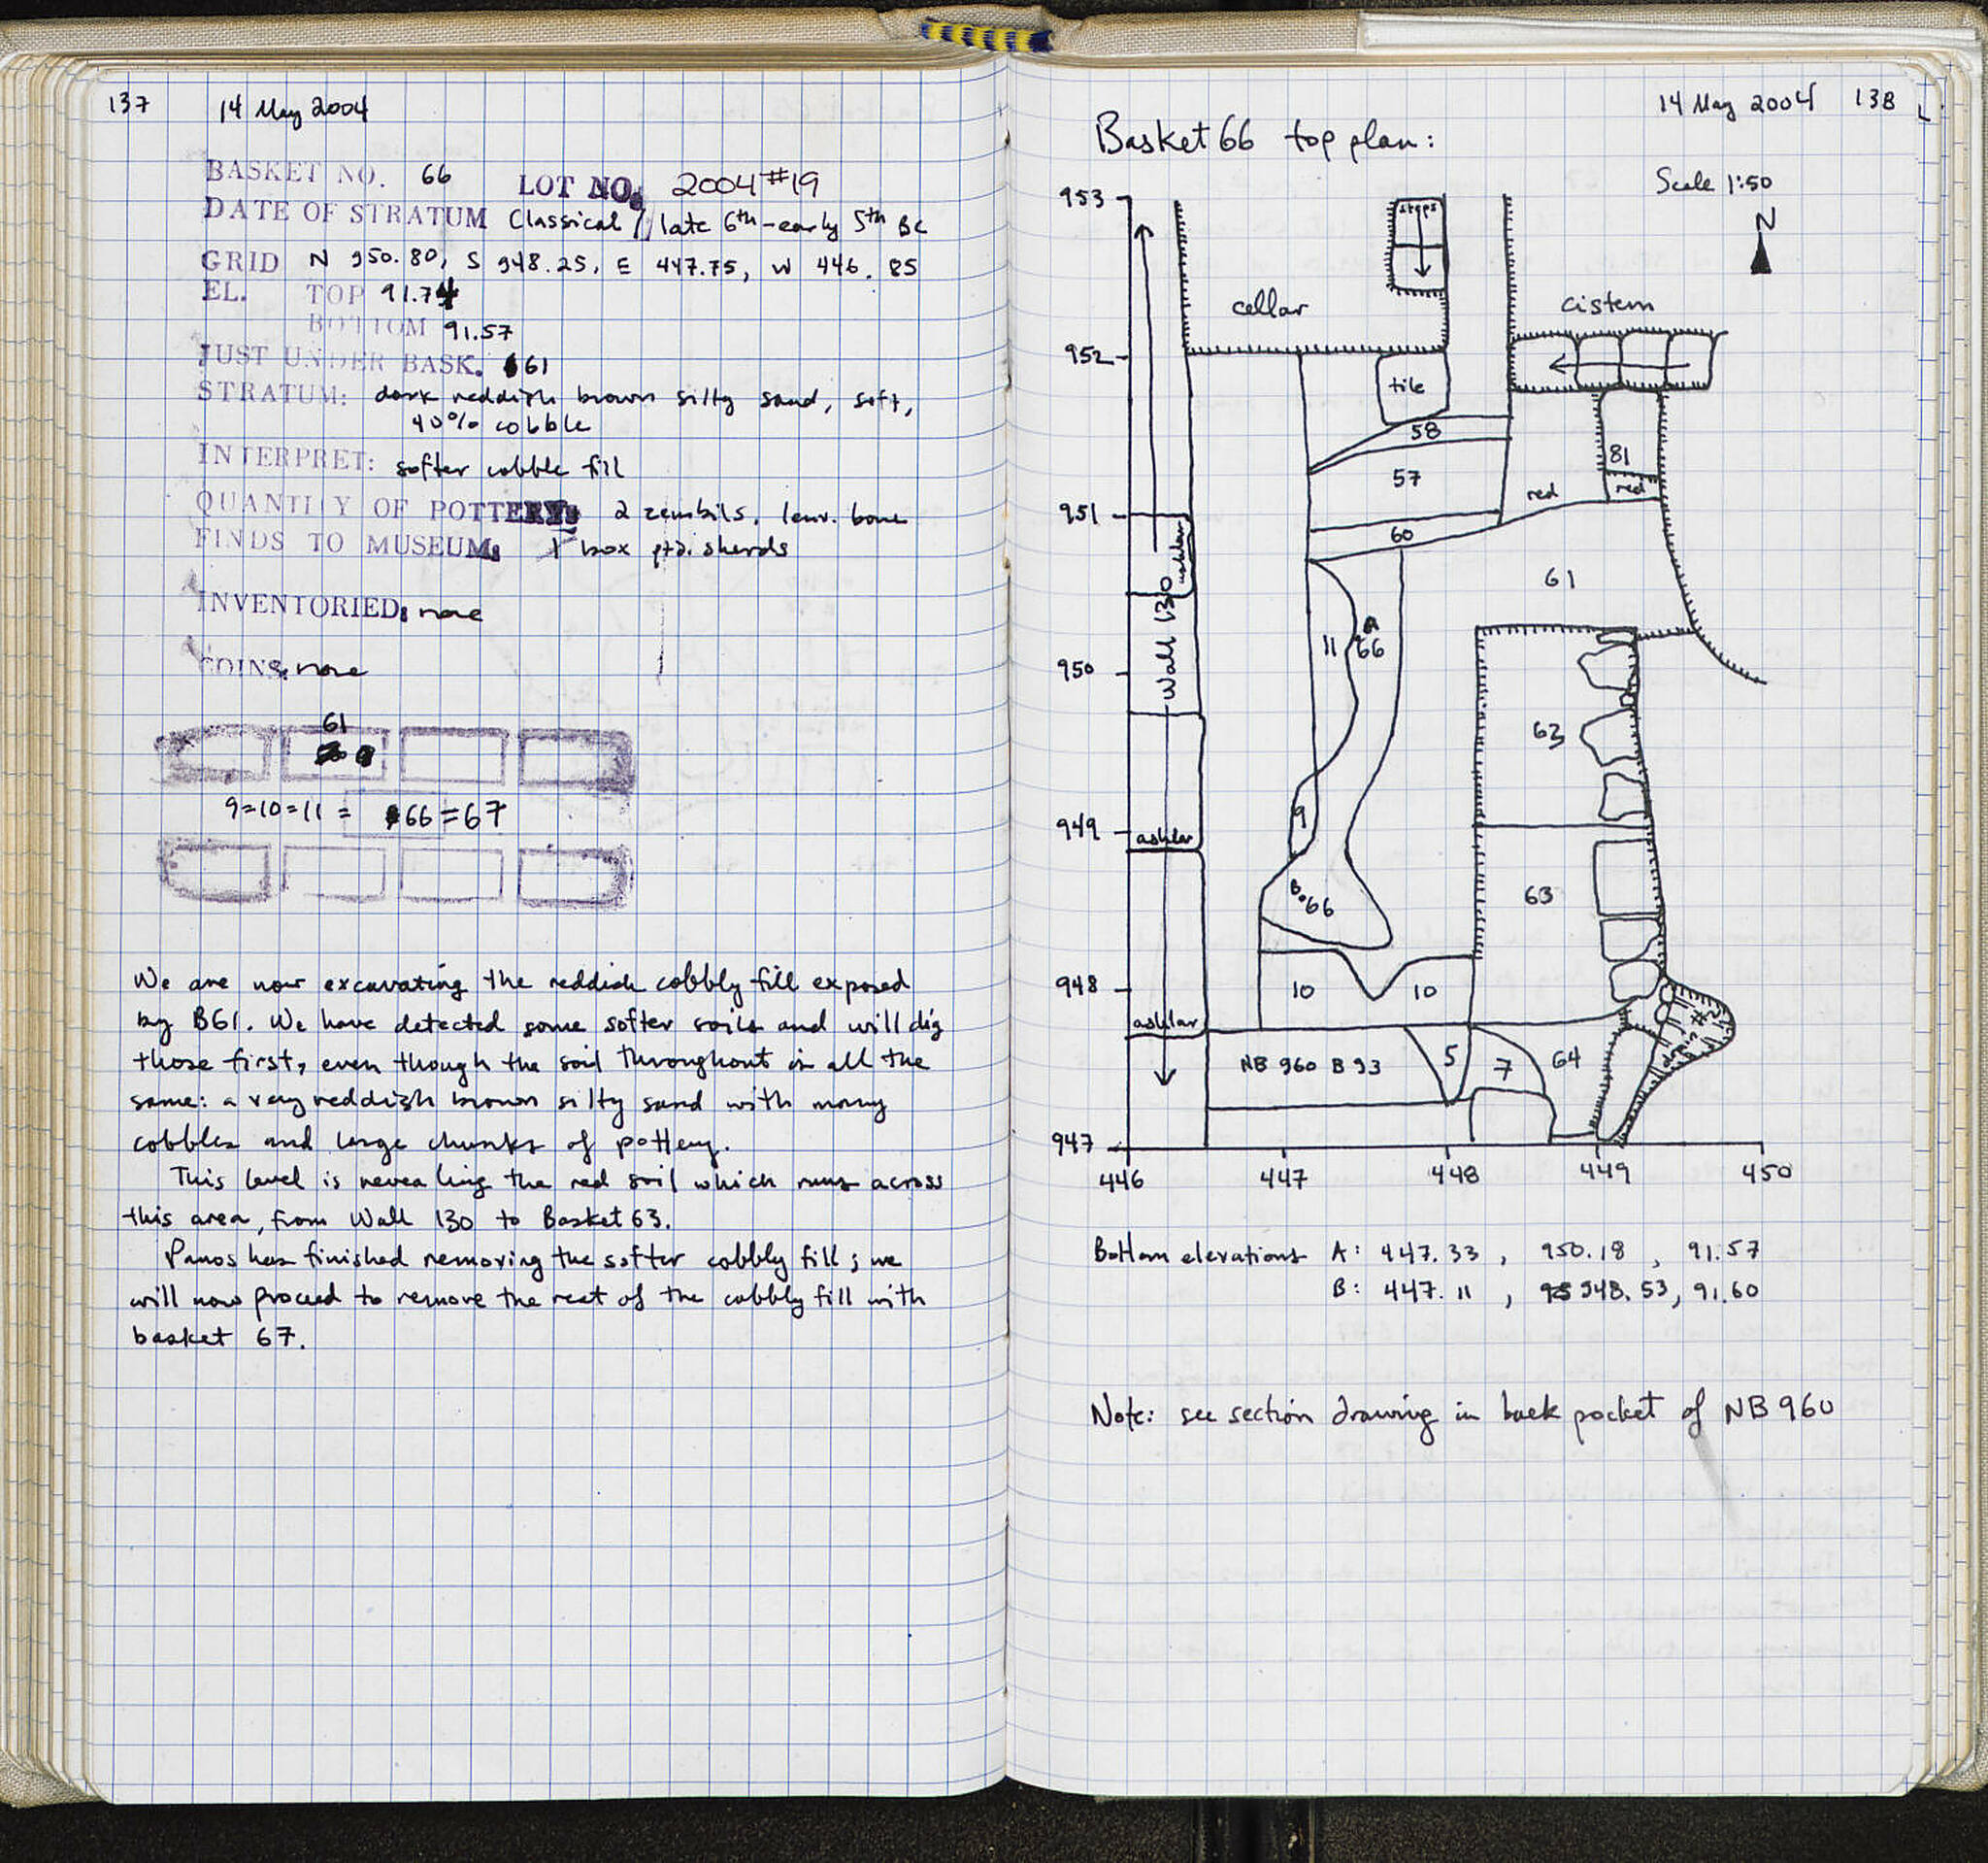 137 14 May 2004
BASKET NO. 66 LOT NO. 2004#19
DATE OF STRATUM Classical / late 6th-early 5th BC
GRID N 950.80, S 948.25, E 447.75, W 446.85
EL. TOP 91.74
BOTTOM 91.57
JUST UNDER BASK. 61
STRATUM: dark reddish brown silty sand, soft,
40% cobble
INTERPRET: softer cobble fill
QUANTITY OF POTTERY: 2 zembils, 1 env. bone
FINDS TO MUSEUM: 1 box ptd. sherds
INVENTORIED: none
COINS: none
61
9=10=11 = 66 =67
We are now excavating the reddish cobbly fill exposed
by B61. We have detected some softer soils and will dig
those first, even though the soil throughout is all the
same: a very reddish brown silty sand with many
cobbles and large chunks of pottery.
This level is revealing the red soil which runs across
this area, from Wall 130 to Basket 63.
Panos has finished removing the softer cobbly fill; we
will now proceed to remove the rest of the cobbly fill with
basket 67.
14 May 2004 138
Basket 66 top plan:
Scale 1:50
N
953
steps
cellar
cistern
952
tile
58
57
81
red
red
951
60
ashlar
61
Wall 130
A
11
66
950
63
9
949
ashlar
B
66
63
948
10
10
ashlar
#
drain
NB 960 B 93
5
7
64
947
446 447 448 449 450
Bottom elevations A: 447.33, 950.18, 91.57
B: 447.11, 948.53, 91.60
Note: see section drawing in back pocket of NB 960